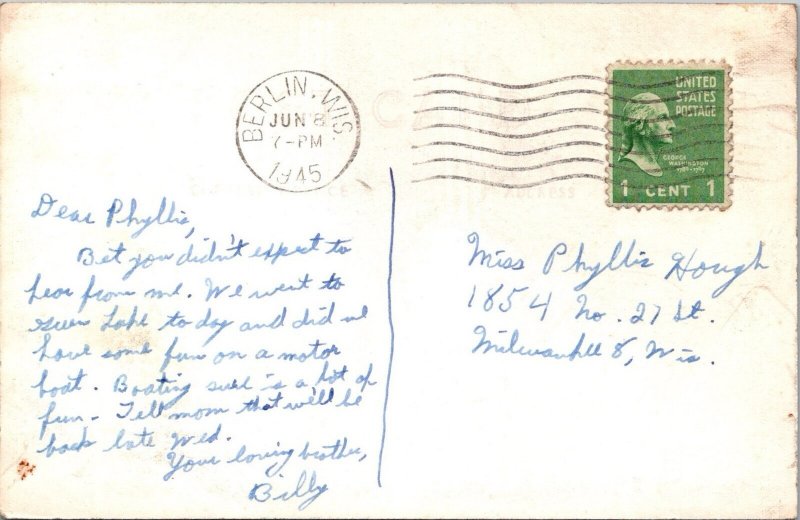 BERLIN, WIS.
JUN 8
7-PM
1945
UNITED
STATES
POSTAGE
GEORGE
WASHINGTON
1789-1797
1 CENT 1
Dear Phyllis,
Bet you didn't expect to
hear from me. We went to
Green Lake to day and did we
have some fun on a motor
boat. Boating sure is a lot of
fun - Tell mom that we'll be
back late Wed.
Your loving brother,
Billy
Miss Phyllis Hough
1854 No. 27 St.
Milwaukee 8, Wis.